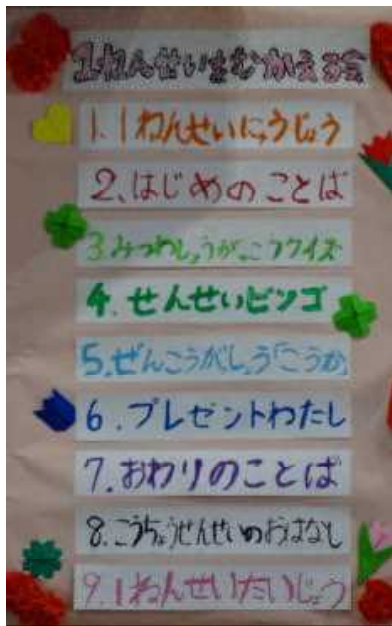 1ねんせいをむかえる会
1.1ねんせいにゅうじょう
2.はじめのことば
3.みつわしょうがっこうクイズ
4.せんせいビンゴ
5.ぜんこうがっしょう「こうか」
6.プレゼントわたし
7.おわりのことば
8.こうちょうせんせいのおはなし
9.1ねんせいたいじょう